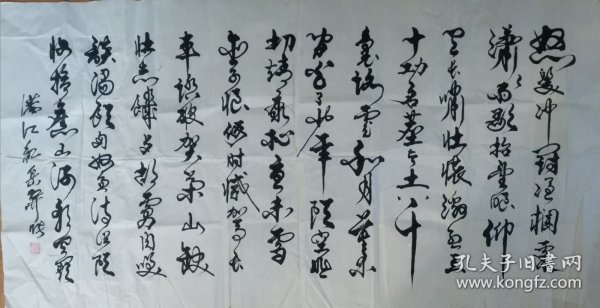 怒髮冲冠凭栏處
瀟々雨歇抬望眼仰
天长啸壮懷激烈三
十功名塵与土八千
里路雲和月莫等
闲白了少年頭空悲
切靖康耻猶未雪
臣子恨何时滅驾长
車踏破贺兰山缺
壮志饑餐胡虏肉笑
談渴飲匈奴血待從
收拾舊山河朝天闕
满江红岳飛
孔夫子旧书网
www.kongfz.com